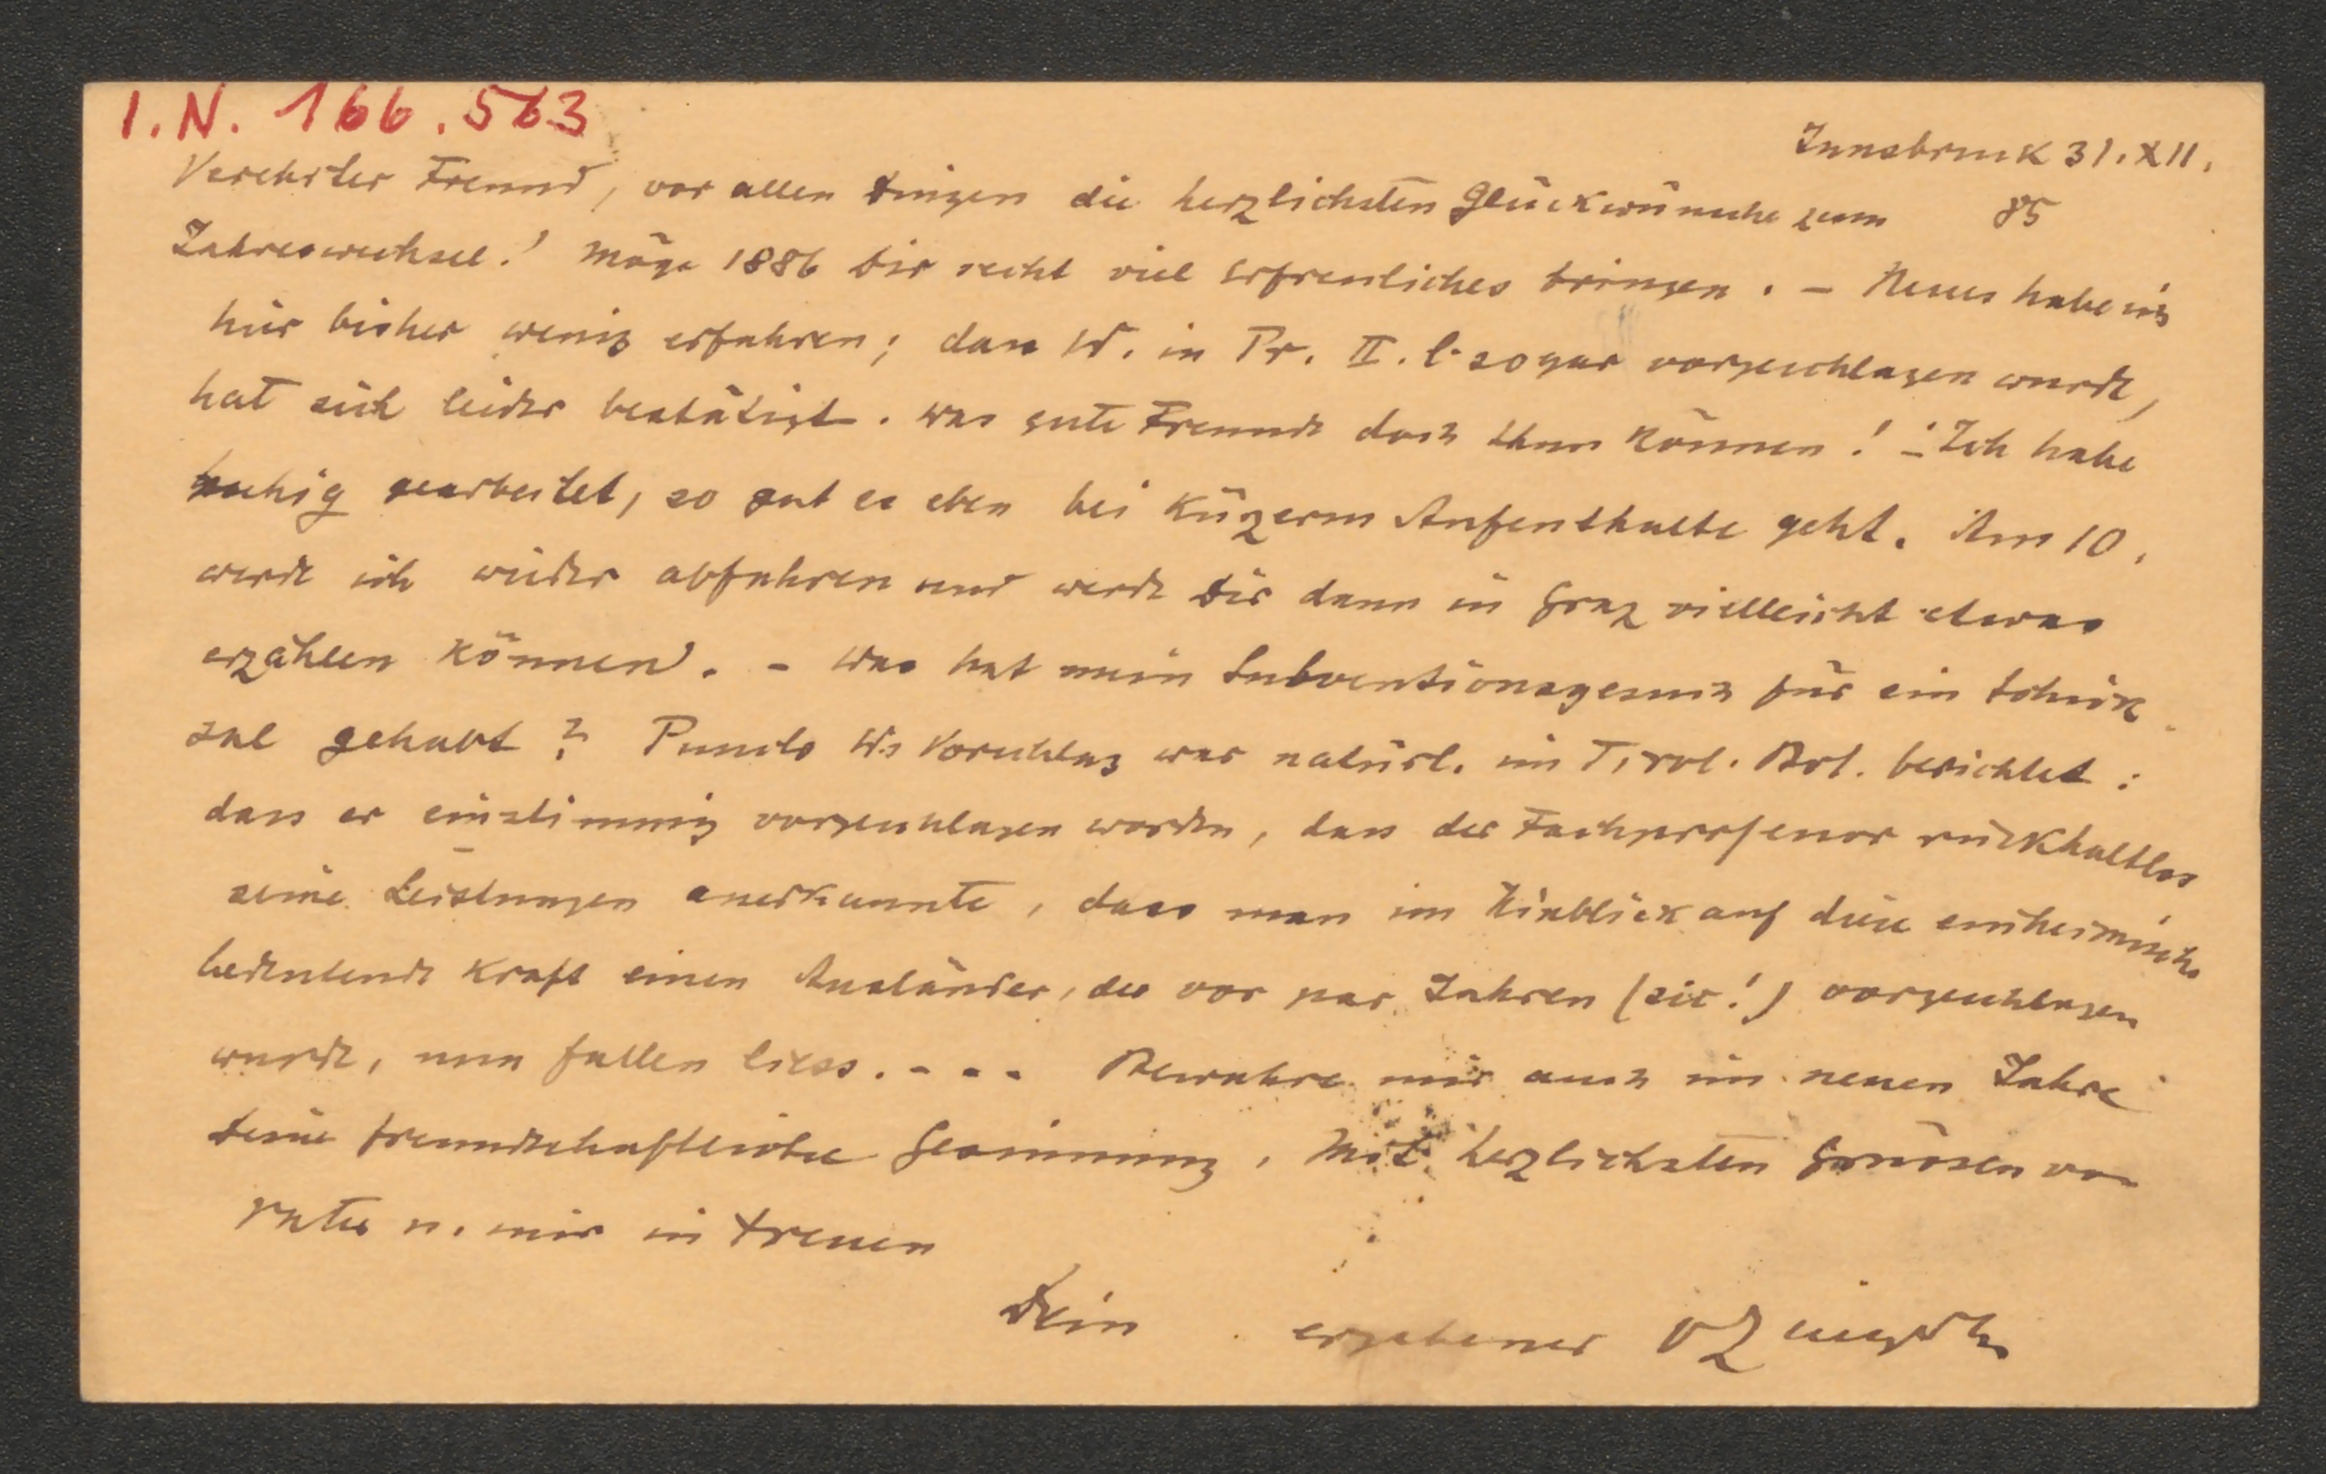 I.N. 166.563
Innsbruck 31. XII.
85
Verehrter Freund, vor allen Dingen die herzlichsten Glückwünsche zum
Jahreswechsel! Möge 1886 Dir recht viel Erfreuliches bringen. – Neues habe ich
hier bisher wenig erfahren; dass W. in Pr. II. l. sogar vorgeschlagen wurde,
hat sich leider bestätigt. Was gute Freunde doch thun können! – Ich habe
gearbeitet, so gut es eben bei kürzerm Aufenthalte geht. Am 10.
werde ich wieder abfahren und werde Dir dann in Graz vielleicht etwas
erzählen können. – Was hat mein Subventionsgesuch für ein Schick-
sal gehabt? Puncto W.s Vorschlag war natürl. im Tirol. Bot. berichtet:
dass er einstimmig vorgeschlagen worden, dass der Fachprofessor rückhaltlos
seine Leistungen anerkannte, dass man im Hinblick auf diese einheimische
bedeutende Kraft einen Ausländer, der vor par Jahren (sic!) vorgeschlagen
wurde, nun fallen liess. - - - Bewahre mir auch im neuen Jahre
Deine freundschaftliche Gesinnung. Mit herzlichsten Grüssen von
Vater u. mir in Treuen
Dein ergebener OZingerle